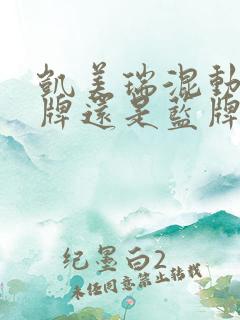 凱美瑞混動
牌還是藍牌
纪墨白2
未经同意禁止转载